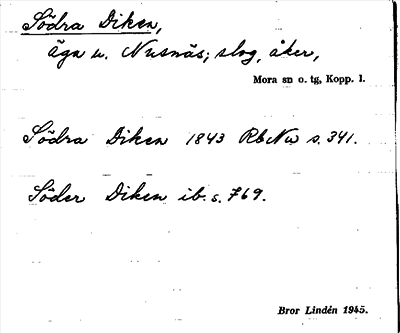 Södra Diken,
äga u. Nusnäs; slog, åker,
Mora sn o. tg, Kopp. l.
Södra Diken 1843 RbNu s. 341.
Söder Diken ib. s. 769.
Bror Lindén 1945.